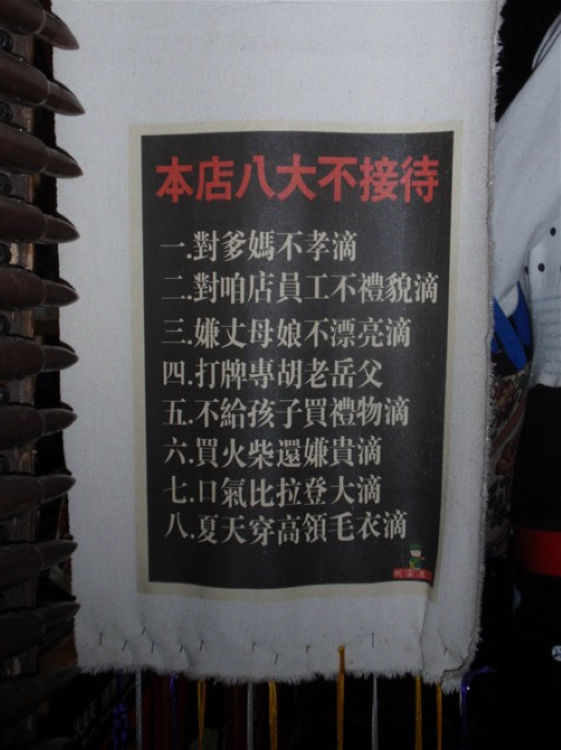 本店八大不接待
一.對爹媽不孝滴
二.對咱店員工不禮貌滴
三.嫌丈母娘不漂亮滴
四.打牌專胡老岳父
五.不給孩子買禮物滴
六.買火柴還嫌貴滴
七.口氣比拉登大滴
八.夏天穿高領毛衣滴